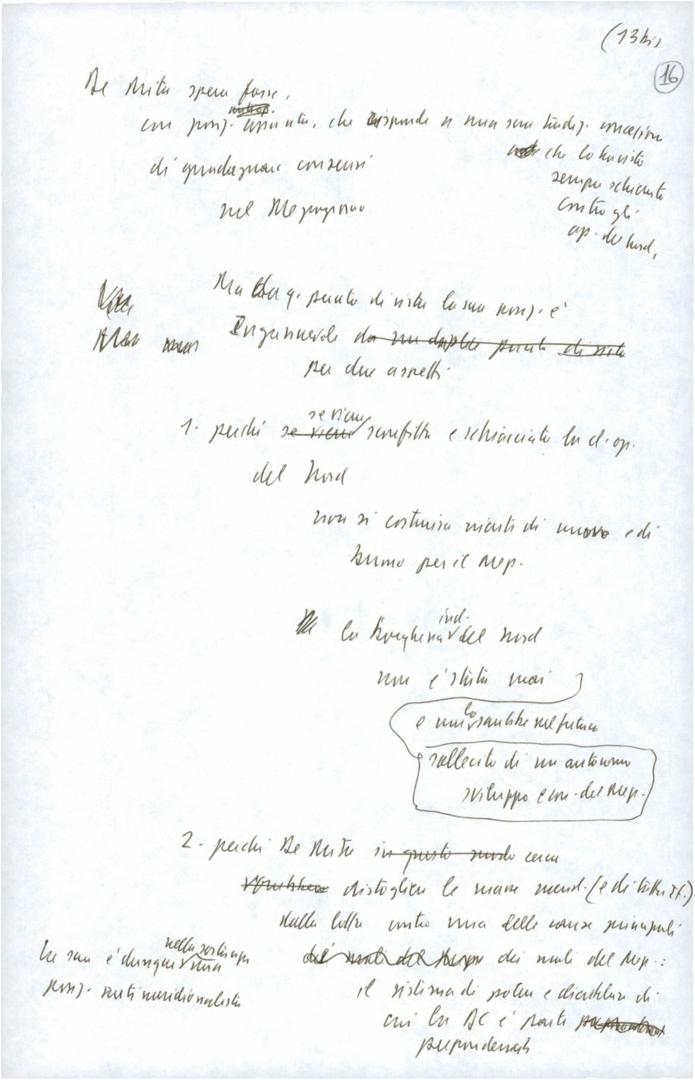 (13 bis
16
De Mita spera forse,
con posiz. assunta, che risponde a una sua tradiz. concezione
che lo ha visto
sempre schierato
contro gli
op. del Nord,
di guadagnare consensi
nel Mezzogiorno
Ma da q. punto di vista la sua posiz. è
Ingannevole da un duplice punto di vista
per due aspetti
1. perché se viene sconfitta e schiacciata la cl. op.
del Nord
non si costruisce niente di nuovo e di
buono per il Mezz.
la borghesia ind. del Nord
non è stata mai
e mai lo sarebbe nel futuro
sollecita di un autonomo
sviluppo econ. del Mezz.
2. perché De Mita in questo modo cerca
distogliere le masse merid. (e di tutta It.)
dalla lotta contro una delle cause principali
dei mali del Mezz. dei mali del Mezz.:
il sistema di potere e di
cui la DC è parte
preponderante
La sua è dunque nella sostanza una
posiz. antimeridionalista